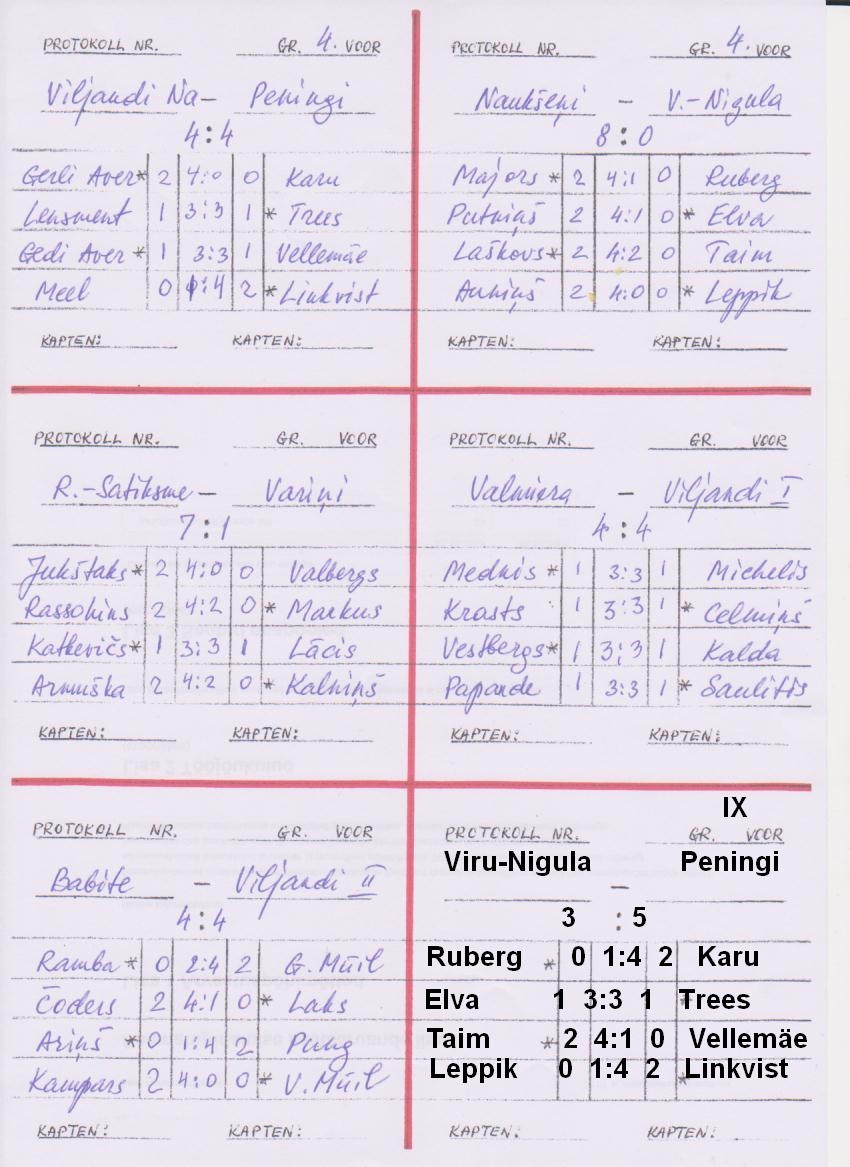 PROTOKOLL NR. GR. 4. VOOR
Viljandi Na – Peningi
4:4
Gerli Aver* 2 4:0 0 Karu
Lensment 1 3:3 1 * Trees
Gedi Aver * 1 3:3 1 Vellemäe
Meel 0 0:4 2 * Linkvist
KAPTEN: KAPTEN:
PROTOKOLL NR. GR. 4. VOOR
Naukšeņi – V.-Nigula
8:0
Majors * 2 4:1 0 Ruberg
Putniņš 2 4:1 0 * Elva
Laškovs * 2 4:2 0 Taim
Auniņš 2 4:0 0 * Leppik
KAPTEN: KAPTEN:
PROTOKOLL NR. GR. VOOR
R.-Satiksme – Variņi
7:1
Jukštaks * 2 4:0 0 Valbergs
Rassohins 2 4:2 0 * Markus
Katkevičs * 1 3:3 1 Lācis
Armuška 2 4:2 0 * Kalniņš
KAPTEN: KAPTEN:
PROTOKOLL NR. GR. VOOR
Valmiera – Viljandi I
4:4
Mednis * 1 3:3 1 Michelis
Krasts 1 3:3 1 * Celmiņš
Vestbergs * 1 3:3 1 Kalda
Papande 1 3:3 1 * Saulitis
KAPTEN: KAPTEN:
PROTOKOLL NR. GR. VOOR
Babite – Viljandi II
4:4
Ramba * 0 2:4 2 G. Müil
Čoders 2 4:1 0 * Laks
Ariņš * 0 1:4 2 Pung
Kampars 2 4:0 0 * V. Müil
KAPTEN: KAPTEN:
IX
PROTOKOLL NR. GR. VOOR
Viru-Nigula – Peningi
3 : 5
Ruberg * 0 1:4 2 Karu
Elva 1 3:3 1 * Trees
Taim * 2 4:1 0 Vellemäe
Leppik 0 1:4 2 * Linkvist
KAPTEN: KAPTEN: